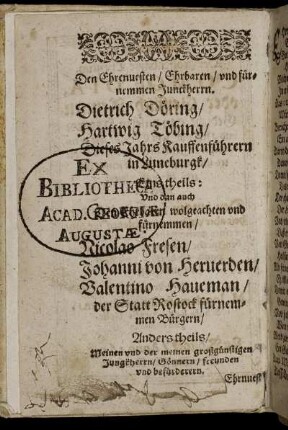 Den Ehrenuesten/ Ehrbaren/ vnd für-
nemmen Junckherrn.
Dietrich Döring/
Hartwig Töbing/
Dieses Jahrs Kauffenführern
in Luneburgk/
Eins theils:
Vnd dan auch
wolgeachten vnd
fürnemmen/
Nicolao Fresen/
Johanni von Heruerden/
Valentino Haueman/
der Statt Rostock fürnem-
men Bürgern/
Anders theils/
Meinen vnd der meinen großgünstigen
Jungkherrn/ Gönnern/ freunden
vnd beförderern.
Ehrnuest
EX
BIBLIOTHECA
ACAD. GEORGIÆ
AUGUSTÆ